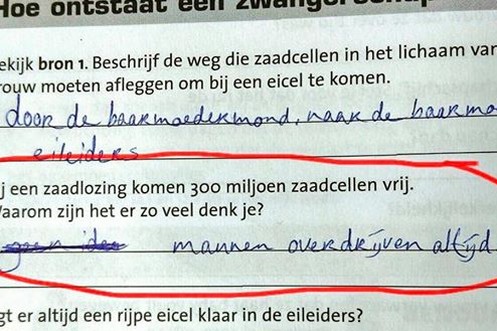 Hoe ontstaat een zwangerschap
ekijk bron 1. Beschrijf de weg die zaadcellen in het lichaam van
rouw moeten afleggen om bij een eicel te komen.
door de baarmoedermond, naar de baarmo
eileiders
j een zaadlozing komen 300 miljoen zaadcellen vrij.
Vaarom zijn het er zo veel denk je?
geen idee mannen overdrijven altijd
gt er altijd een rijpe eicel klaar in de eileiders?